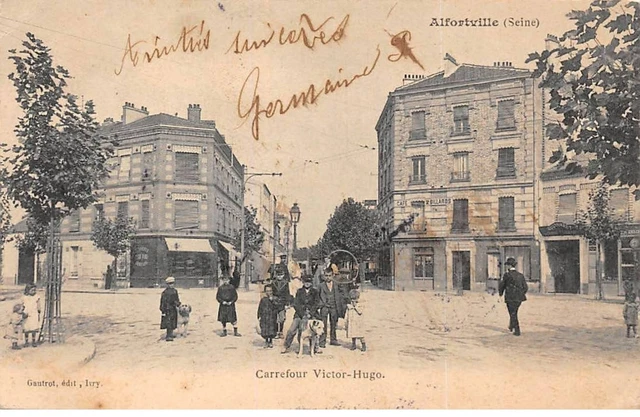 Alfortville (Seine)
Amitiés sincères
Germaine
CAFÉ BILLARDS
Carrefour Victor-Hugo.
Gautrot, édit, Ivry.